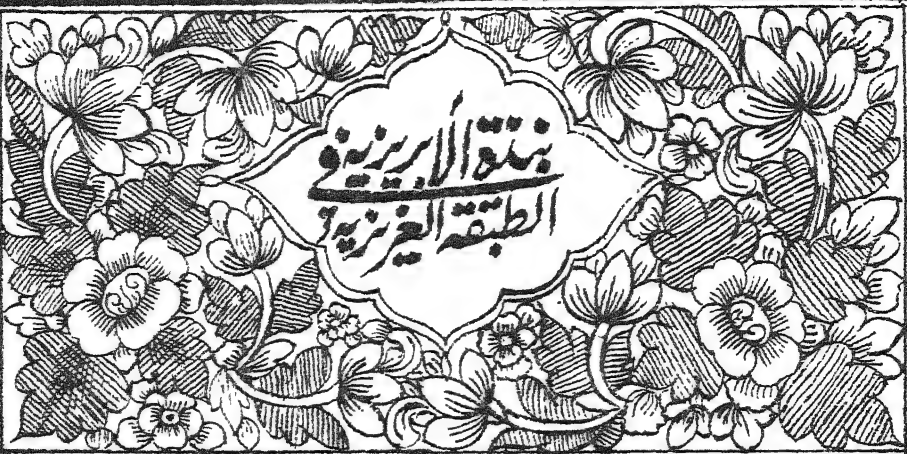 الأبريزية في
الطبقة العزيزية